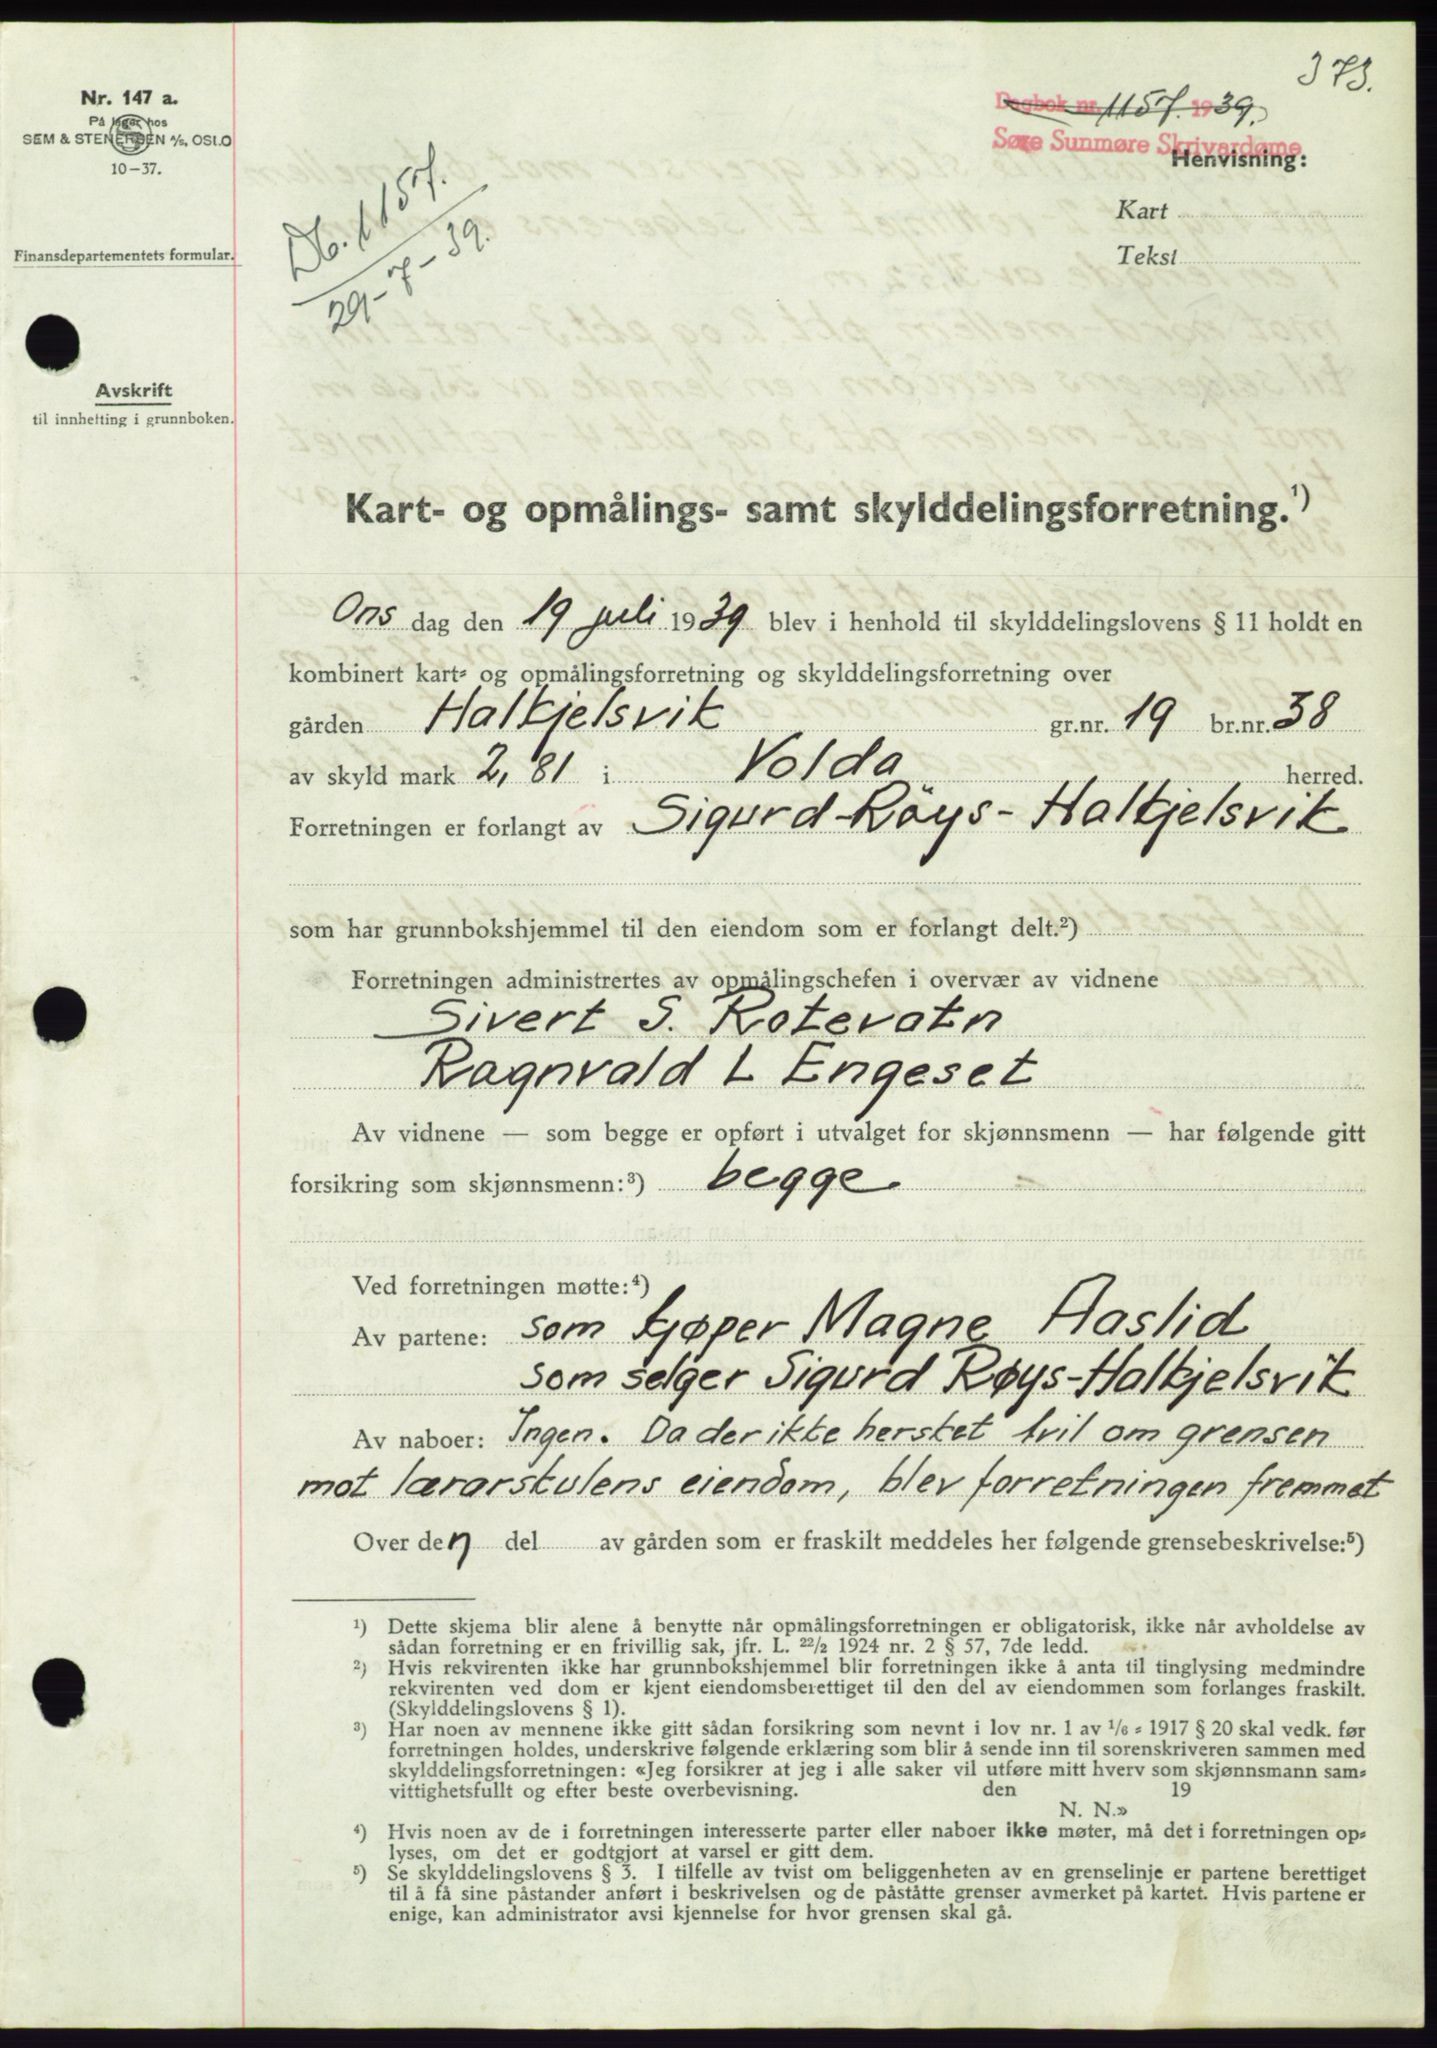 373.
Nr. 147 a.
På lager hos
SEM & STENERSEN A/S, OSLO
10-37.
Dagbok nr. 1157. 1939.
Søre Sunmøre Skrivardøme
Henvisning:
Kart
Tekst
Db. 1157.
29-7-39.
Finansdepartementets formular.
Avskrift
til innhefting i grunnboken.
Kart- og opmålings- samt skylddelingsforretning.¹)
Ons dag den 19 juli 1939 blev i henhold til skylddelingslovens § 11 holdt en
kombinert kart- og opmålingsforretning og skylddelingsforretning over
gården Halkjelsvik gr.nr. 19 br.nr. 38
av skyld mark 2,81 i Volda herred.
Forretningen er forlangt av Sigurd Røys-Halkjelsvik
som har grunnbokshjemmel til den eiendom som er forlangt delt.²)
Forretningen administrertes av opmålingschefen i overvær av vidnene
Sivert S. Rotevatn
Ragnvald L Engeset
Av vidnene — som begge er opført i utvalget for skjønnsmenn — har følgende gitt
forsikring som skjønnsmenn:³) begge
Ved forretningen møtte:⁴)
Av partene: som kjøper Magne Aaslid
som selger Sigurd Røys-Halkjelsvik
Av naboer: Ingen. Da der ikke hersket tvil om grensen
mot lærarskulens eiendom, blev forretningen fremmet
Over den del av gården som er fraskilt meddeles her følgende grensebeskrivelse:⁵)
¹) Dette skjema blir alene å benytte når opmålingsforretningen er obligatorisk, ikke når avholdelse av
sådan forretning er en frivillig sak, jfr. L. 22/2 1924 nr. 2 § 57, 7de ledd.
²) Hvis rekvirenten ikke har grunnbokshjemmel blir forretningen ikke å anta til tinglysing medmindre
rekvirenten ved dom er kjent eiendomsberettiget til den del av eiendommen som forlanges fraskilt.
(Skylddelingslovens § 1).
³) Har noen av mennene ikke gitt sådan forsikring som nevnt i lov nr. 1 av 1/6 - 1917 § 20 skal vedk. før
forretningen holdes, underskrive følgende erklæring som blir å sende inn til sorenskriveren sammen med
skylddelingsforretningen: «Jeg forsikrer at jeg i alle saker vil utføre mitt hverv som skjønnsmann sam-
vittighetsfullt og efter beste overbevisning. den 19
N. N.»
⁴) Hvis noen av de i forretningen interesserte parter eller naboer ikke møter, må det i forretningen op-
lyses, om det er godtgjort at varsel er gitt dem.
⁵) Se skylddelingslovens § 3. I tilfelle av tvist om beliggenheten av en grenselinje er partene berettiget
til å få sine påstander anført i beskrivelsen og de påståtte grenser avmerket på kartet. Hvis partene er
enige, kan administrator avsi kjennelse for hvor grensen skal gå.